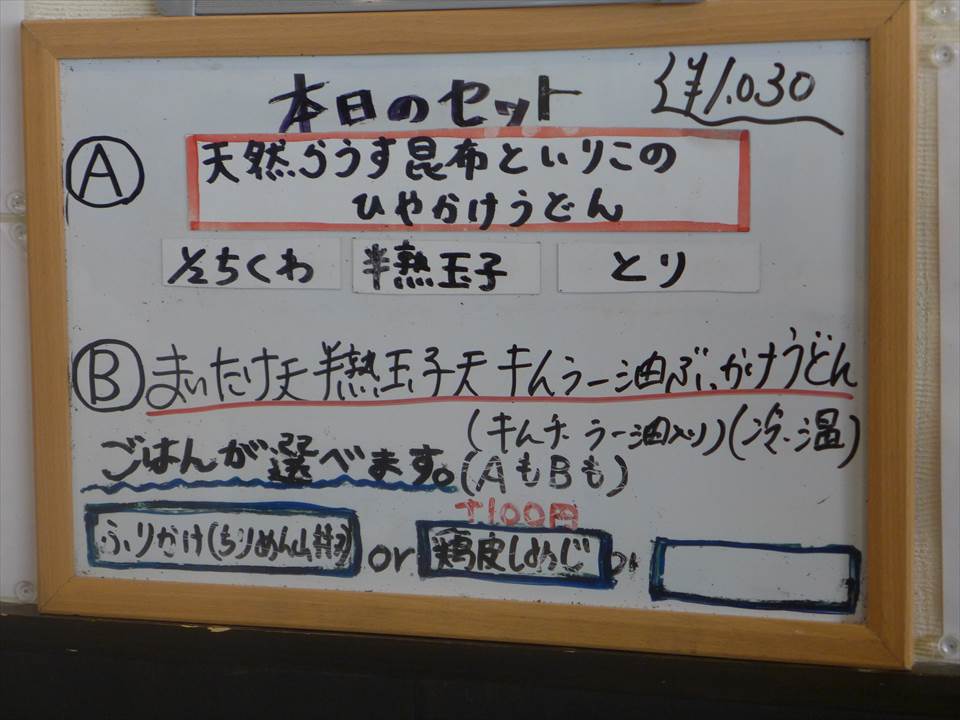 本日のセット
¥1.030
A
天然らうす昆布といりこの
ひやかけうどん
½ちくわ 半熟玉子 とり
B まいたけ天半熟玉子天キムラー油ぶっかけうどん
(キムチ ラー油入り)(冷・温)
ごはんが選べます。(AもBも)
+100円
ふりかけ(ちりめん山椒) or 鶏皮しょうが or